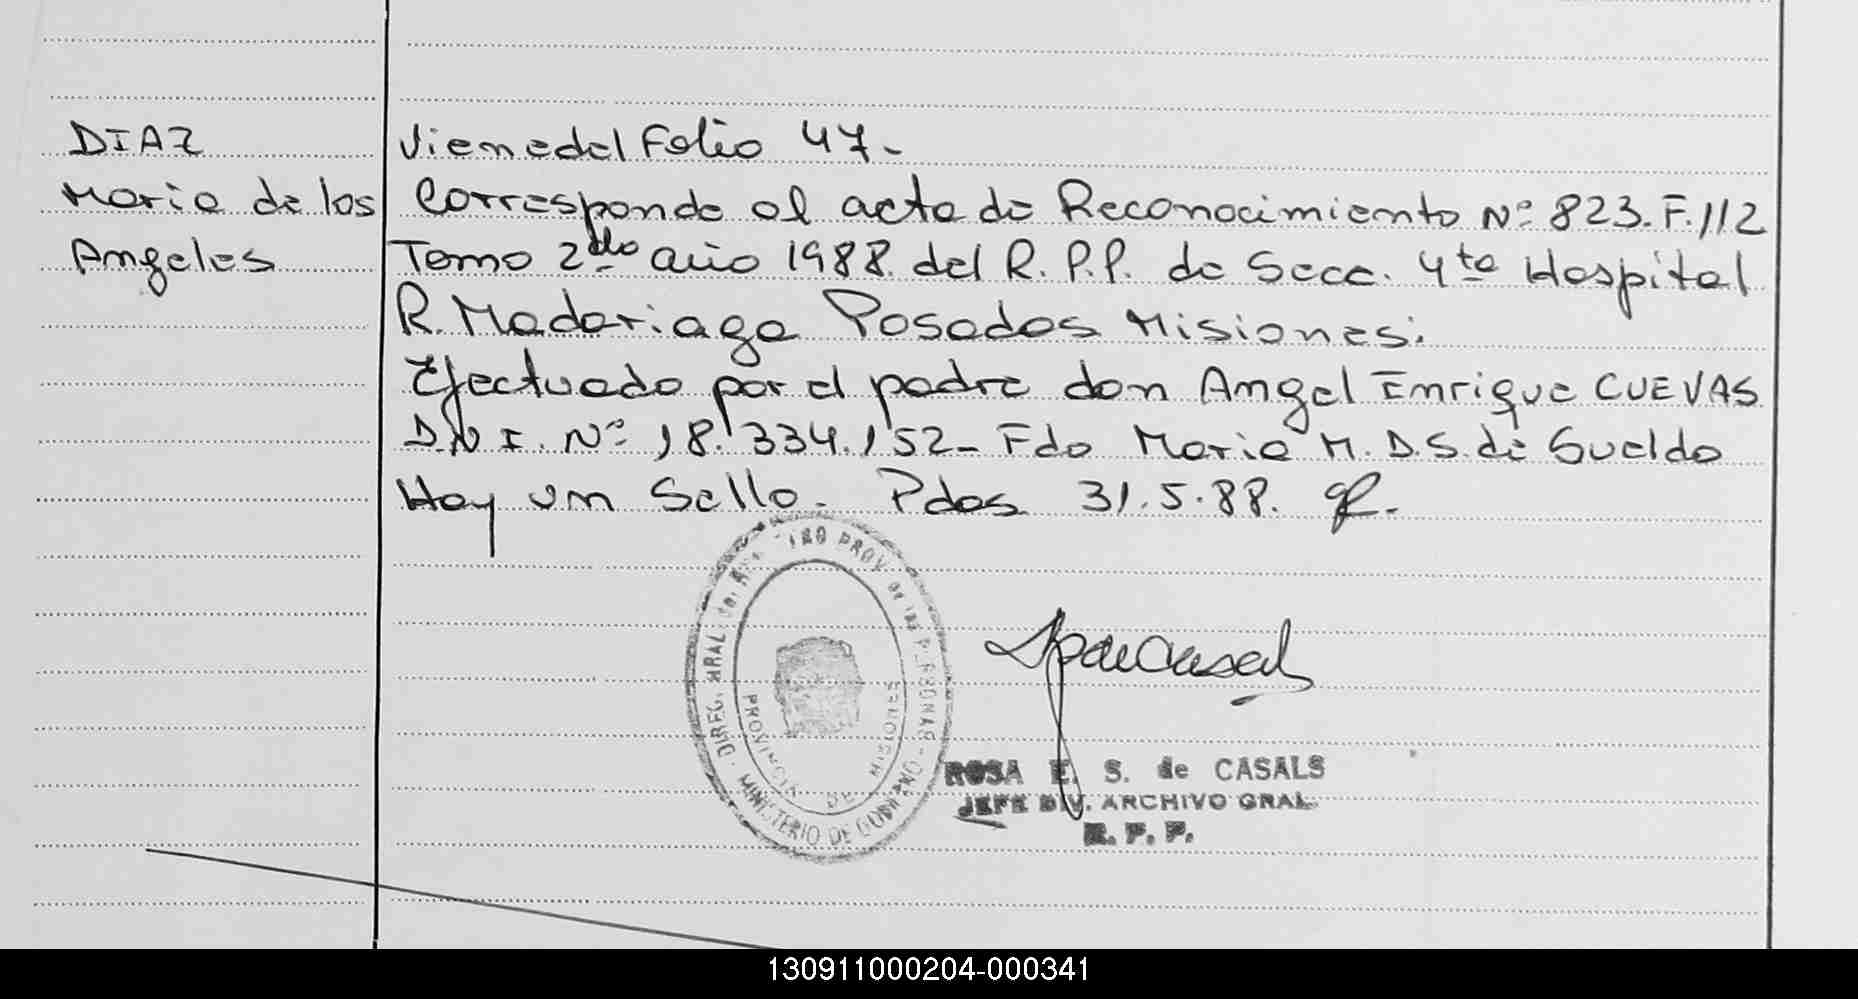 DIAZ
Maria de los
Angeles
Viene del Folio 47-
Corresponde al acta de Reconocimiento Nº 823. F. 112
Tomo 2do año 1988. del R. P. P. de Secc. 4ta Hospital
R. Madariaga Posadas Misiones.
Efectuado por el padre don Angel Enrique CUEVAS
D.N.I. Nº 18.334.152- Fdo Maria M. D. S. de Sueldo
Hay un Sello. Pdas 31.5.88.
DIREC. GRAL. del PROV. de las PERSONAS - MINISTERIO DE GOBIERNO
PROVINCIA DE MISIONES
ROSA E. S. de CASALS
JEFE DIV. ARCHIVO GRAL.
R. P. P.
130911000204-000341